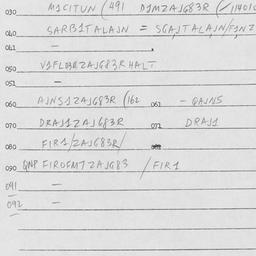 030 M1CITUN (491 D1MZAJG83R (✓114010
040 SARB1TALAJN = SGAJTALAJN/F1NZ
041 –
050 V1FLBRZAJG83RHALT
051 –
060 AJNS1ZAJG83R (162 061 – GAJNS
070 DRAJ1ZAJG83R 071 DRAJ1
080 FIR1/ZAJG83R/
090 QNP FIROFM7ZAJG83 / FIR1
091 –
092 –